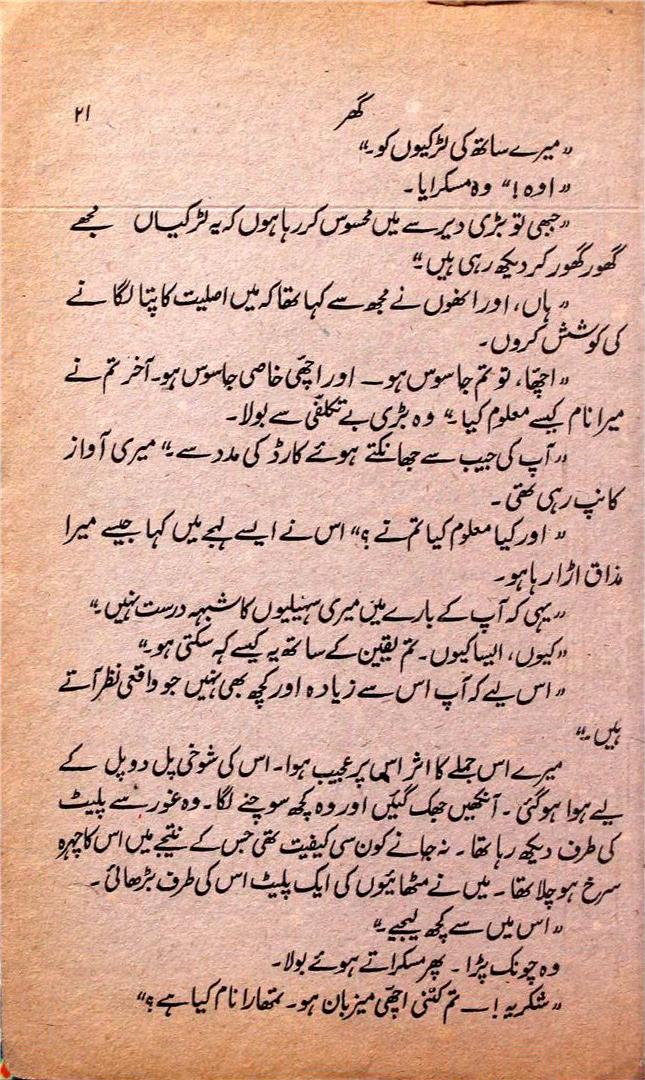 گھر ۲۱
„میرے ساتھ کی لڑکیوں کو۔“
„اوہ!“ وہ مسکرایا۔
„جبھی تو بڑی دیر سے میں محسوس کر رہا ہوں کہ یہ لڑکیاں مجھے
گھور گھور کر دیکھ رہی ہیں۔“
„ہاں، اور انھوں نے مجھ سے کہا تھا کہ میں اصلیت کا پتا لگانے
کی کوشش کروں۔
„اچھّا، تو تم جاسوس ہو — اور اچھّی خاصی جاسوس ہو۔ آخر تم نے
میرا نام کیسے معلوم کیا۔“ وہ بڑی بے تکلّفی سے بولا۔
„آپ کی جیب سے جھانکتے ہوئے کارڈ کی مدد سے۔“ میری آواز
کانپ رہی تھی۔
„اور کیا معلوم کیا تم نے؟“ اس نے ایسے لہجے میں کہا جیسے میرا
مذاق اڑا رہا ہو۔
„یہی کہ آپ کے بارے میں میری سہیلیوں کا شبہہ درست نہیں۔“
„کیوں، ایسا کیوں۔ تم یقین کے ساتھ یہ کیسے کہہ سکتی ہو۔“
„اس لیے کہ آپ اس سے زیادہ اور کچھ بھی نہیں جو واقعی نظر آتے
ہیں۔“
میرے اس جملے کا اثر اس پر عجیب ہوا۔ اس کی شوخی پل دو پل کے
لیے ہوا ہو گئی۔ آنکھیں جھک گئیں اور وہ کچھ سوچنے لگا۔ وہ غور سے پلیٹ
کی طرف دیکھ رہا تھا۔ نہ جانے کون سی کیفیت تھی جس کے نتیجے میں اس کا چہرہ
سرخ ہو چلا تھا۔ میں نے مٹھائیوں کی ایک پلیٹ اس کی طرف بڑھائی۔
„اس میں سے کچھ لیجیے۔“
وہ چونک پڑا۔ پھر مسکراتے ہوئے بولا۔
„شکریہ! — تم کتنی اچھّی میزبان ہو۔ تمھارا نام کیا ہے؟“